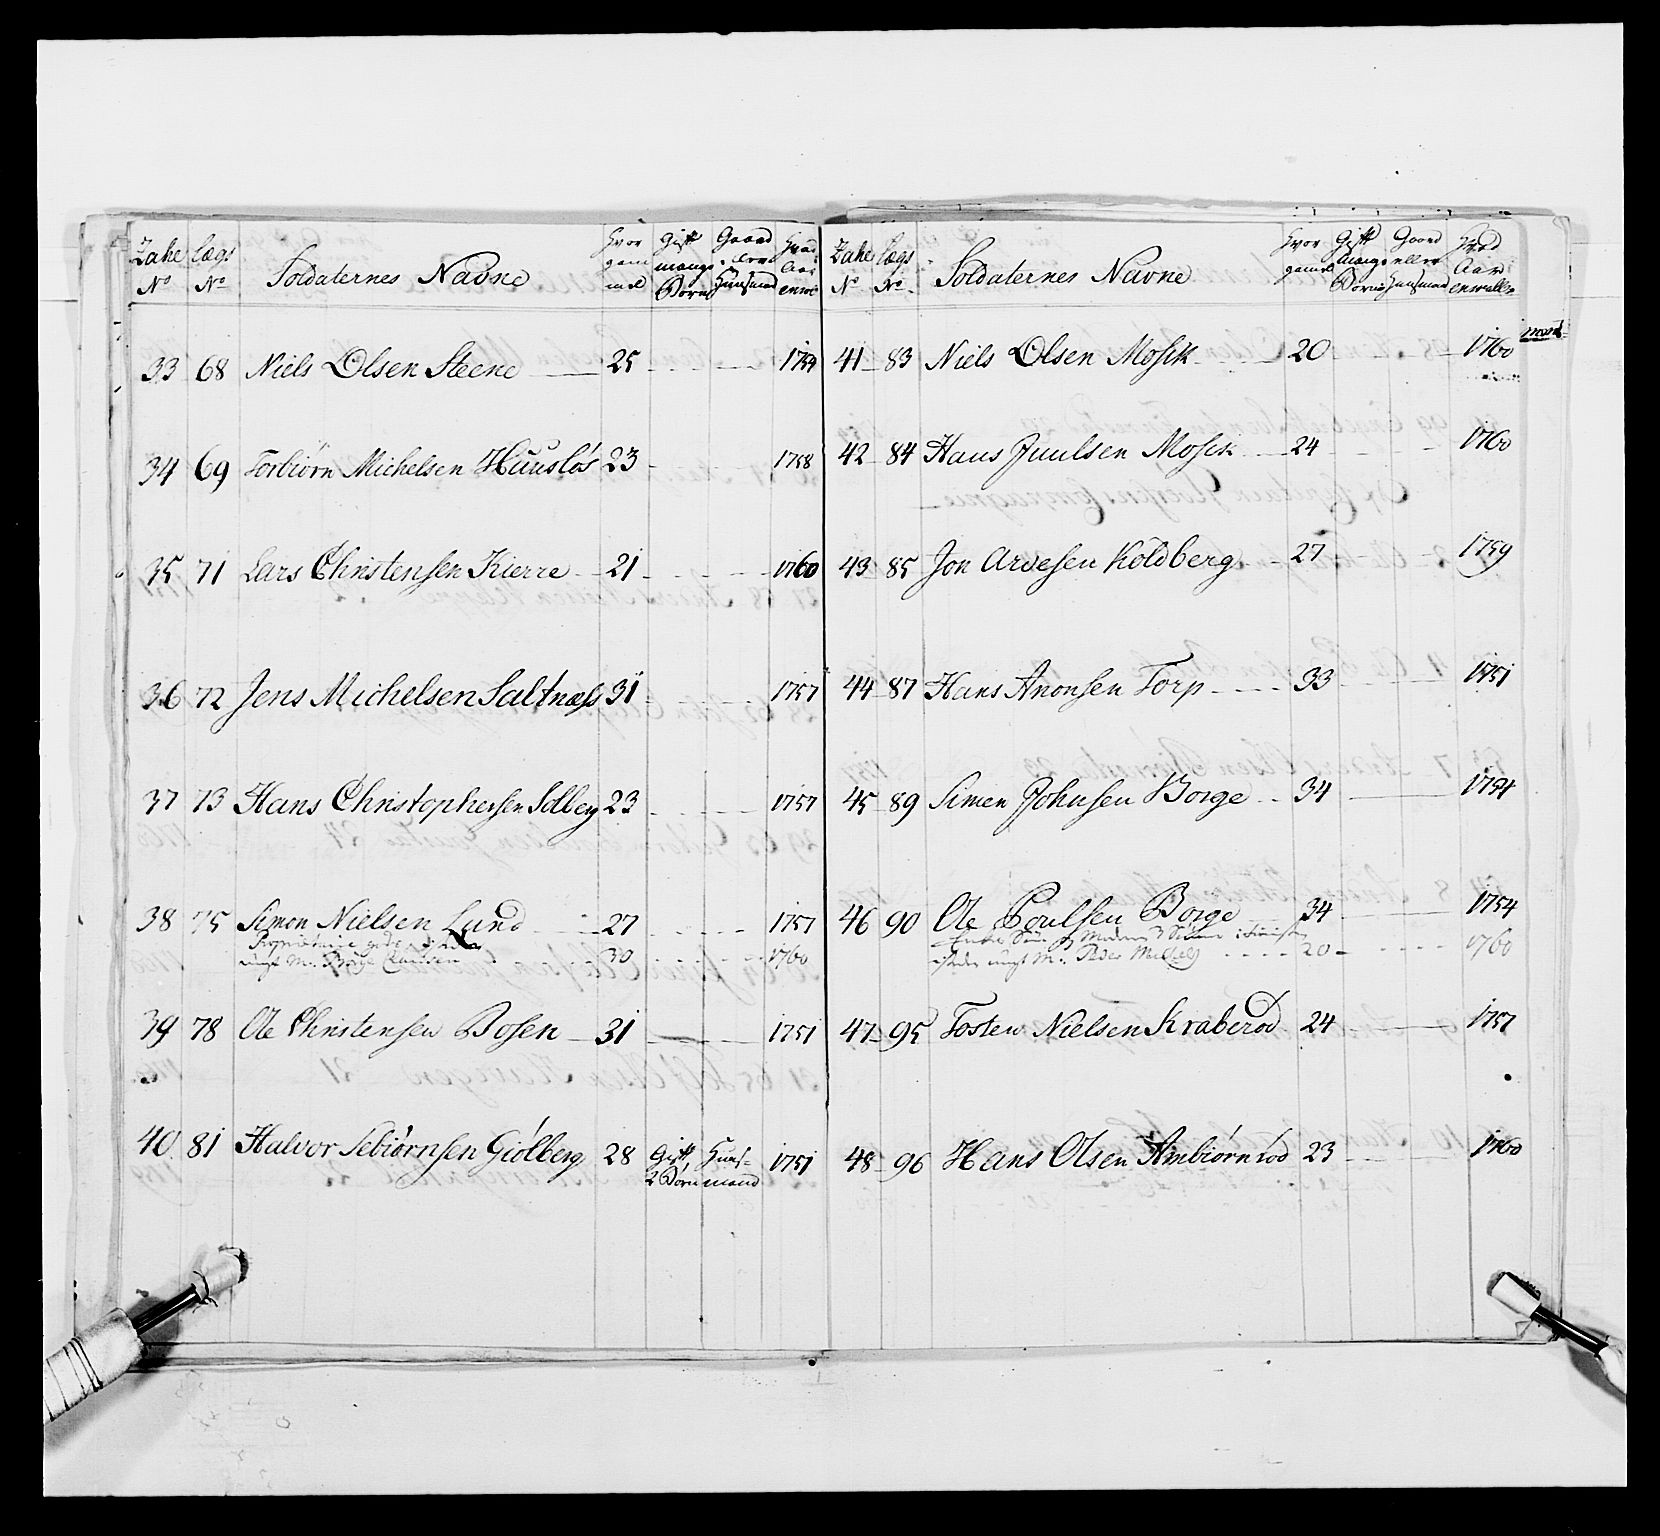 Zahe Lægs Soldaternes Navne Hvor gam mel Gift mange Børn Gaard Huusmand Hvad Aar
No No
33 68 Niels Olsen Steene 25 1759
34 69 Torbiörn Michelsen Huuslös 23 1758
35 71 Lars Christensen Kierre 21 1760
36 72 Jens Michelsen Saltnæss 31 1757
37 73 Hans Christophersen Solberg 23 1757
38 75 Simon Nielsen Lund 27 1757
30 1760
39 78 Ole Christensen Bosen 31 1751
40 81 Halvor Tebiörnsen Giölberg 28 Gift Huus= 1751
2 Børn mand
Zahe Lægs Soldaternes Navne Hvor gamel Gift mange Børn Gaard eller Huusmand Hvad Aar enrullr
No No
41 83 Niels Olsen Mosik 20 1760
42 84 Hans Juulsen Mosik 24 1760
43 85 Jon Arvesen Koldberg 27 1759
44 87 Hans Anonsen Torp 33 1751
45 89 Simen Johnsen Borge 34 1754
46 90 Ole Poulsen Borge 34 1754
20 1760
47 95 Tosten Nielsen Kraberöd 24 1757
48 96 Hans Olsen Ambiørnröd 23 1760